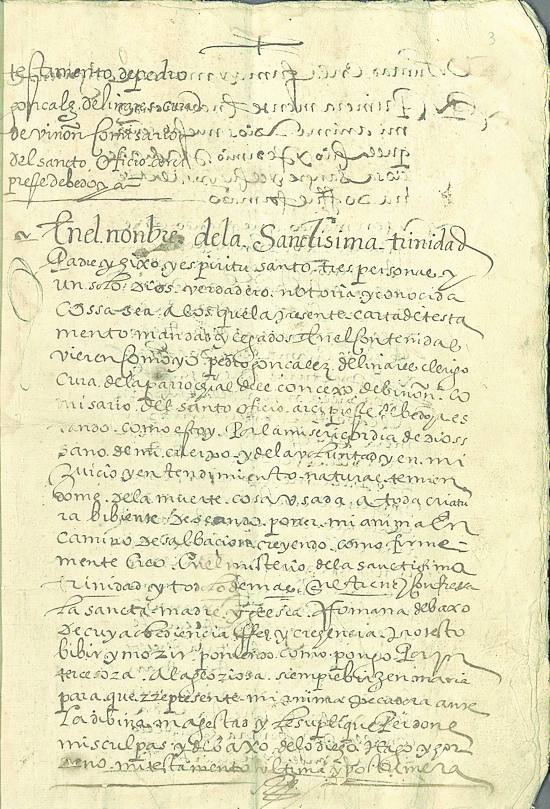 3
testamento de pedro
goncalez de linares cura
de viñon comisario
del sancto oficio arci
preste de bedoya
En el nonbre de la Sanctisima trinidad
Padre y hixo y espiritu santo tres personas y
un solo Dios verdadero notoria y conocida
cossa sea a los que la presente carta de testa
mento mandas y legados en el contenidas
vieren como yo pedro goncalez de linares clerigo
cura de la parroquial de el concexo de biñon co
misario del santo oficio arcipreste de bedoya es
tando como estoy Por la misericordia de Dios s
sano de mi cuerpo y de la voluntad y en mi
Juicio y entendimiento natural temien
dome de la muerte cosa usada a toda criatu
ra bibiente deseando poner mi anima En
camino de salbacion creyendo como firme
mente creo En el misterio de la sanctisima
trinidad y todo lo demas que tiene y confiessa
La sancta madre yglesia Romana debaxo
De cuya obediencia y creencia protesto
bibir y morir poniendo como pongo Por yn
tercesora A la gloriosa siempre birxen maria
para que rrepresente mi anima pecadora ante
La dibina magestad y le suplique Perdone
mis culpas y debaxo de lo digo Hago y hor
deno mi testamento ultima y postrimera